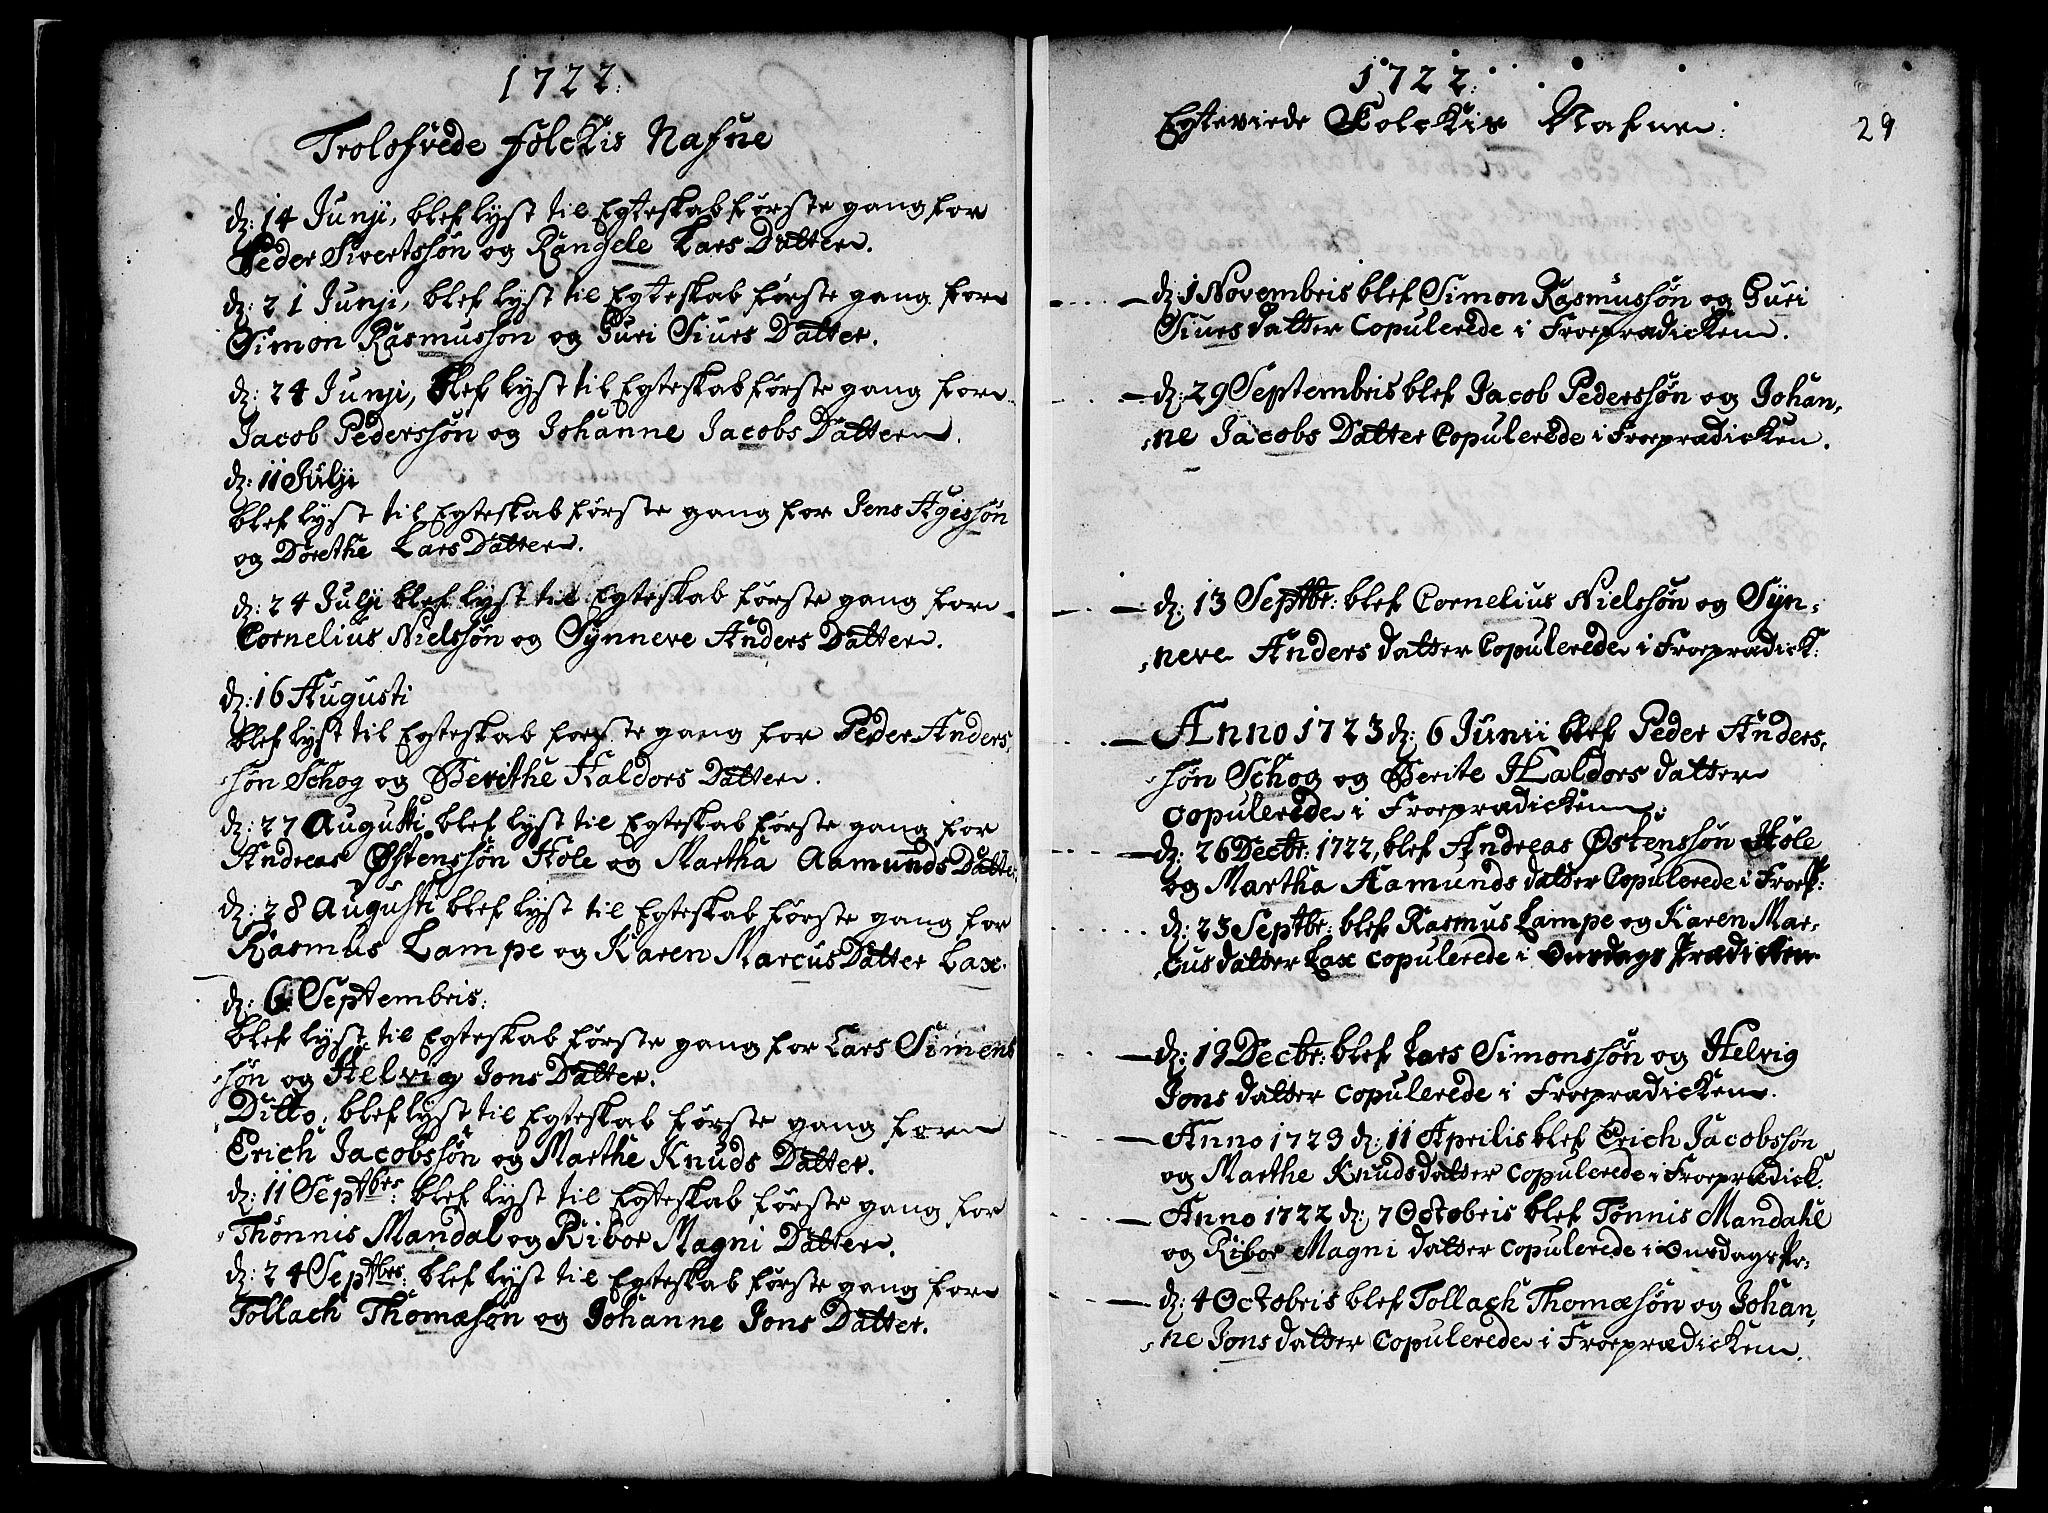 1722:
Trolofvede folckis Nafne
d: 14 Junji, blef lyst til Egteskab første gang for
Peder Sivertssøn og Rangele Lars Datter.
d: 21 Junji, blef lyst til Egteskab første gang for
Simon Rasmussøn og Guri Siurs Datter.
d: 24 Junji, blef lyst til Egteskab første gang for
Jacob Pederssøn og Johanne Jacobs Datter.
d: 11 Julji
blef lyst til Egteskab første gang for Jens Agissøn
og Dorethe Lars Datter.
d: 24 Julji blef lyst til Egteskab første gang for
Cornelius Nielssøn og Synneve Anders Datter.
d: 16 Augusti
blef lyst til Egteskab første gang for Peder Anders,
søn Schog og Berithe Haldors Datter.
d: 27 Augusti blef lyst til Egteskab første gang for
Andreas Østenssøn Hole og Martha Aamunds Datter
d: 28 Augusti blef lyst til Egteskab første gang for
Rasmus Lampe og Karen Marcus Datter Lax.
d: 6 Septembris:
blef lyst til Egteskab første gang for Lars Simens
søn og Helvig Jons Datter.
Ditto, blef lyst til Egteskab første gang for
Erich Jacobssøn og Marthe Knuds Datter.
d: 11 Septbes: blef lyst til Egteskab første gang for
Thønnis Mandal og Ribor Magni Datter.
d: 24 Septbes: blef lyst til Egteskab første gang for
Tollach Thomæsøn og Johanne Jons Datter.
1722:
Egteviede Folckis Nafne:
29
d: 1 Novembris blef Simon Rasmussøn og Guri
Siurs datter Copulerede i Froeprædicken.
d: 29 Septembris blef Jacob Pederssøn og Johan,
ne Jacobs Datter Copulerede i Froeprædicken.
d: 13 Septbr: blef Cornelius Nielssøn og Syn,
neve Anders datter Copulerede i Froeprædick:
Anno 1723 d: 6 Junii blef Peder Anders,
søn Schog og Berite Haldors datter
Copulerede i Froeprædicken:
d: 26 Decbr: 1722, blef Andreas Østenssøn Hole
og Martha Aamunds datter Copulerede i Froep:
d: 23 Septbr: blef Rasmus Lampe og Karen Mar,
cus datter Lax Copulerede i Onsdags Prædicken
d: 19 Decbr: blef Lars Simonssøn og Helvig
Jons datter Copulerede i Froeprædicken.
Anno 1723 d: 11 Aprilis blef Erich Jacobssøn
og Marthe Knuds datter Copulerede i Froeprædick:
Anno 1722 d: 7 Octobris blef Tønnis Mandahl
og Ribor Magni datter Copulerede i Onsdags Pr:
d: 4 Octobris blef Tollach Thomæsøn og Johan,
ne Jons datter Copulerede i Froeprædicken.